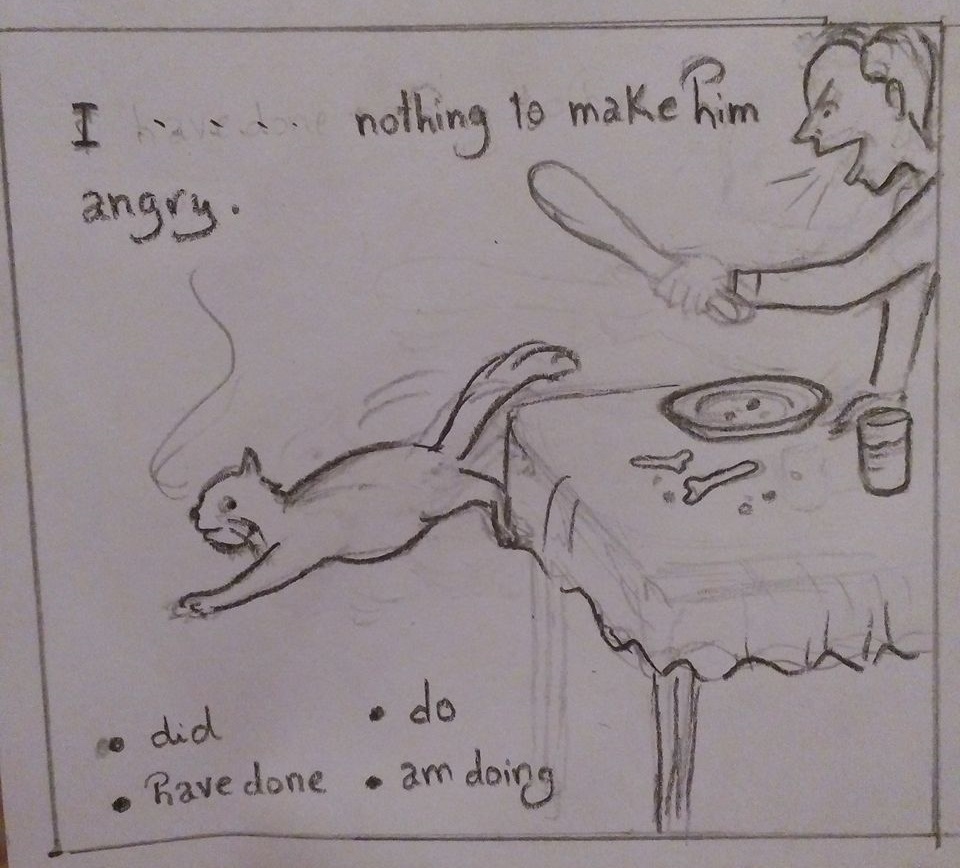 I - - - - nothing to make him
angry.
• did • do
• have done • am doing